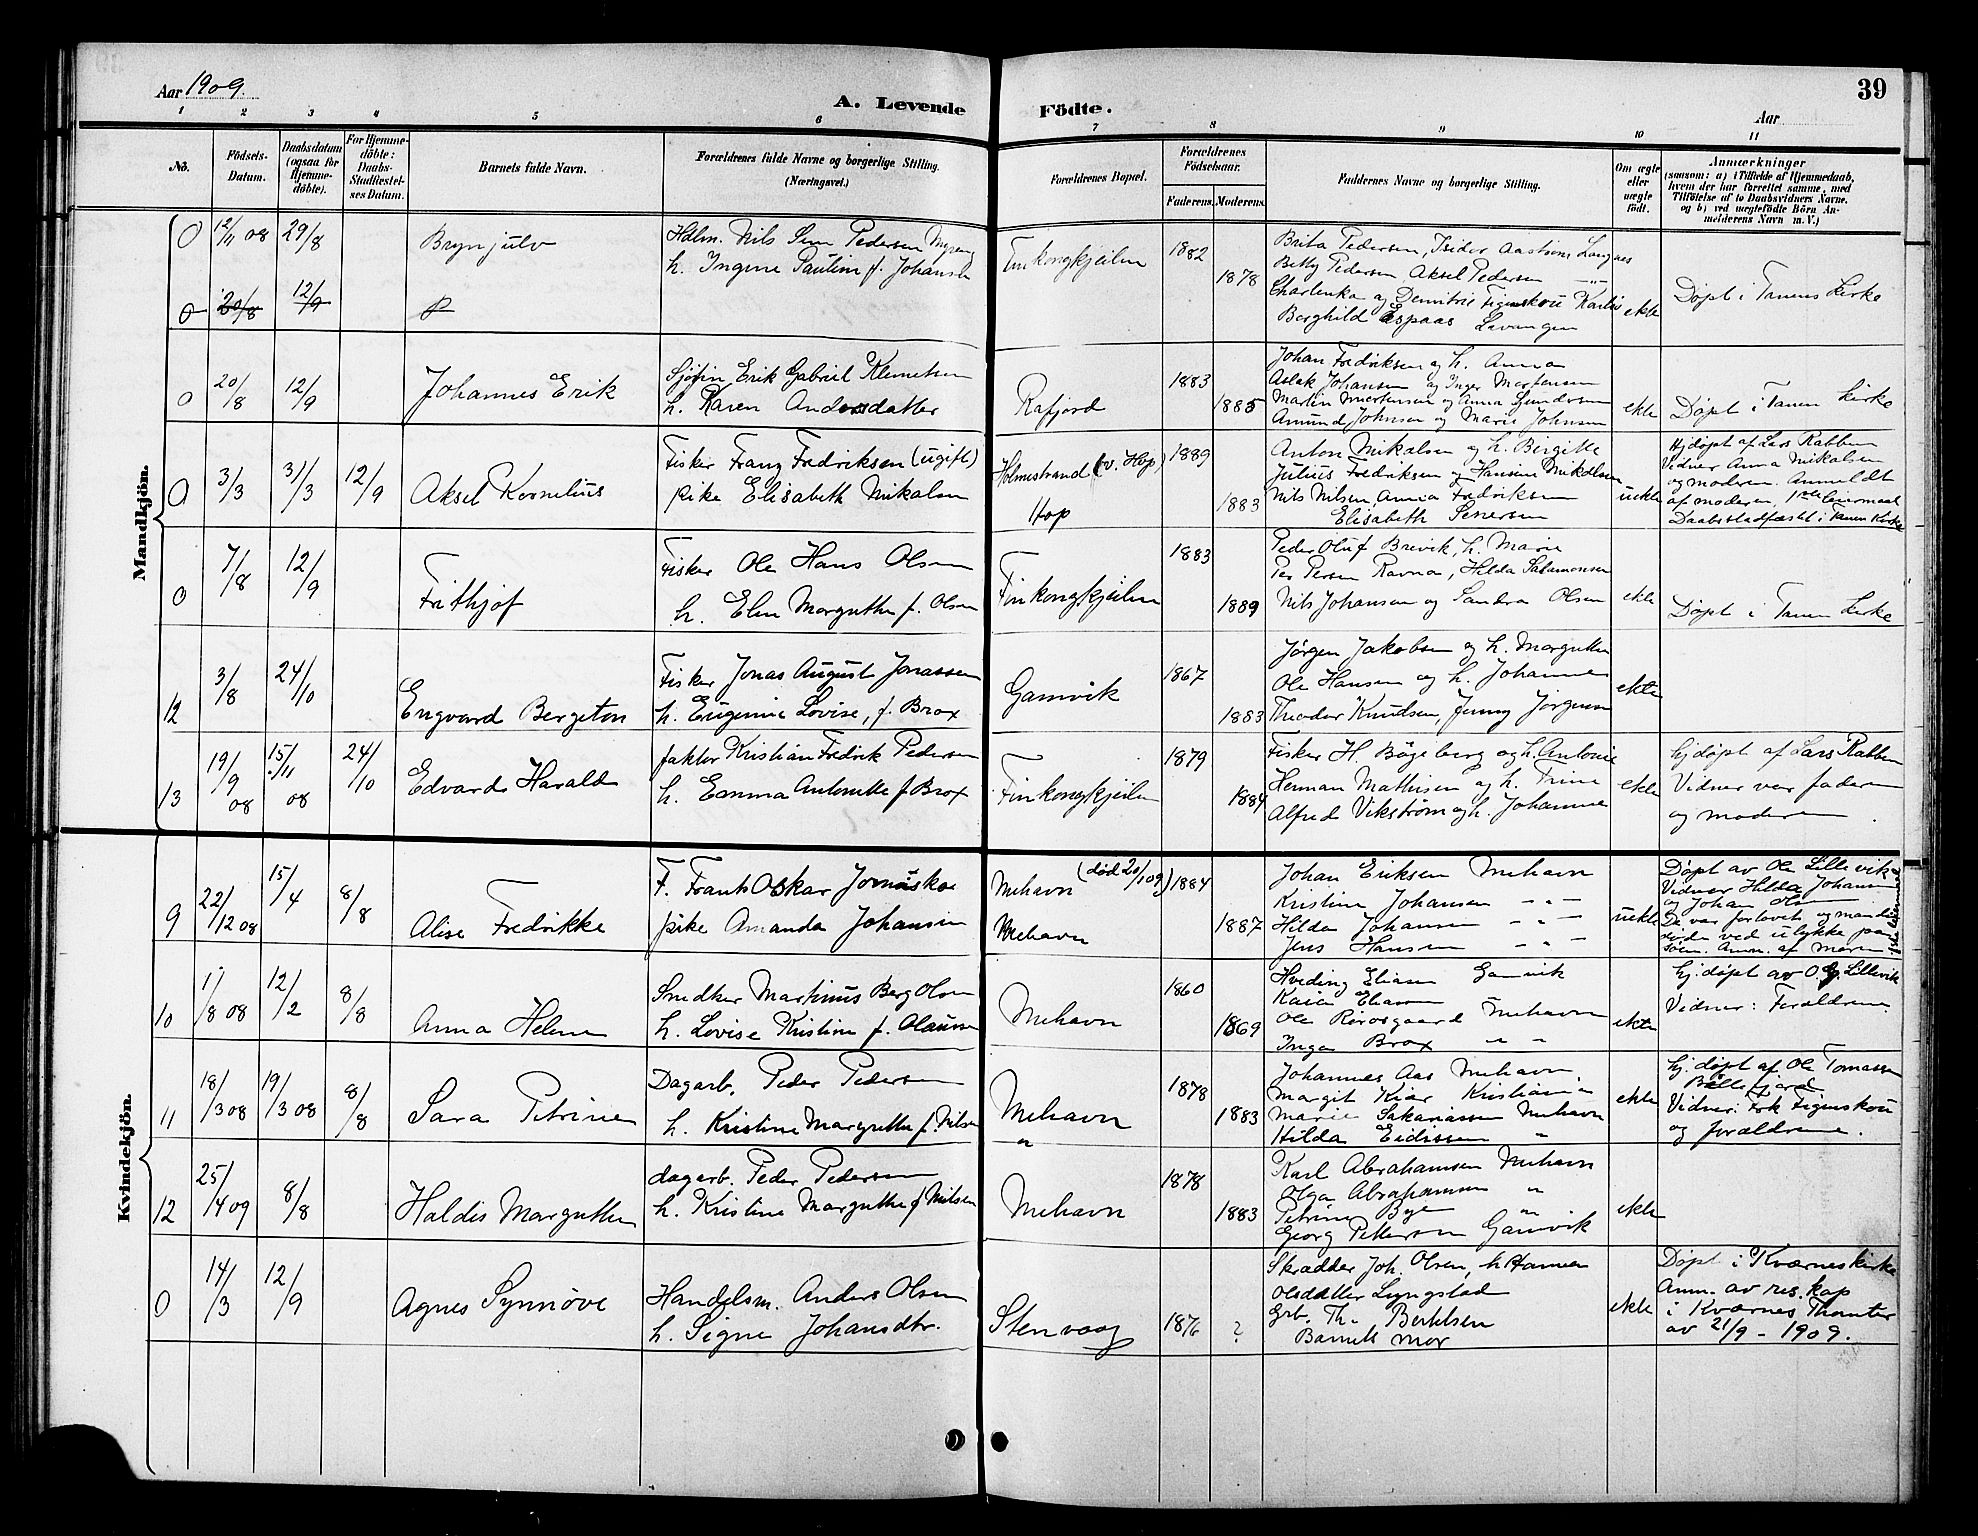 Aar 1909.
A. Levende Födte.
39
Aar
1 2 3 4 5 6 7 8 9 10 11
No.
Födsels-Datum.
Daabsdatum (ogsaa for Hjemme-döbte).
For Hjemme-döbte: Daabs-Stadfæstel-ses Datum.
Barnets fulde Navn.
Forældrenes fulde Navne og borgerlige Stilling. (Næringsvei.)
Forældrenes Bopæl.
Forældrenes Födselsaar.
Faderens. Moderens.
Faddernes Navne og borgerlige Stilling.
Om ægte eller uægte födt.
Anmærkninger
(saasom: a) i Tilfælde af Hjemmedaab,
hvem der har forrettet samme, med
Tilföielse af to Daabsvidners Navne,
og b) ved uægtefödte Börn An-
melderens Navn m. V.)
Mandkjön.
0 12/11 08 29/8 Brynjulv
Hdlm. Nils Senn Pedersen Myreng
h. Ingine Pauline f. Johansen
Finkongkjeilen 1882 1878
Brita Pedersen, Isidor Aastrøm, Langnes
Betty Pedersen Aksel Pedersen —"—
Charlenka og Demitrie Figenskou Karlsø
Berghild Espaas Levangen
ekte
Døpt i Tanens kirke
0 20/8 12/9
0 20/8 12/9 Johannes Erik
Sjøfin Erik Gabriel Klemetsen
h. Karen Andersdatter
Rafjord 1883 1885
Johan Fredriksen og h. Anna
Aslak Johansen og Inger Mortensen
Martin Mortensen og Anna Gundersen
Amund Johnsen og Marie Johnsen
ekte
Døpt i Tanen kirke
0 3/3 31/3 12/9 Aksel Kornelius
Fisker Franz Fredriksen (ugift)
pike Elisabeth Nikalsen
Holmestrand (v. Hop)
Hop
1889 1883
Anton Nikalsen og h. Birgitte
Julius Fredriksen og Hansine Nikolsen
Nils Nilsen Anna Fredriksen
Elisabeth Senersen
uekte
Hjdøpt af Lars Rabben
Vidner Anna Nikalsen
og moderen. Anmeldt
af moderen, 1ste leiermaal
Daabsstadfæstet i Tanen Kirke
0 7/8 12/9 Frithjof
Fisker Ole Hans Olsen
h. Elen Margrethe f. Olsen
Finkongkjeilen 1883 1889
Peder Oluf Brevik, h. Marie
Per Persen Ravna, Hilda Salamonsen
Nils Johansen og Sandra Olsen
ekte
Døpt i Tanen kirke
12 3/8 24/10 Engvard Bergeton
Fisker Jonas August Jonassen
h. Eugenie Lovise, f. Brox
Gamvik 1867 1883
Jørgen Jakobsen og h. Margrethe
Ole Hansen og h. Johanne
Theodor Knudsen, Jenny Jørgensen
ekte
13 19/9 08 15/11 08 24/10 Edvard Harald
faktor Kristian Fredrik Pedersen
h. Emma Antonette f. Brox
Finkongkjeilen 1879 1884
Fisker H. Bøgeberg og h. Antonie
Herman Mathisen og h. Trine
Alfred Vikstrøm og h. Johanne
ekte
hjdøpt af Lars Rabben
Vidner var faderen
og moderen
Kvindekjön.
9 22/12 08 15/4 8/8 Alise Fredrikke
F. Frants Oskar Jomiskoe
pike Amanda Johansen
Mehavn (død 20/1 09)
Mehavn
1884 1887
Johan Eriksen Mehavn
Kristine Johansen — " —
Hilda Johansen — " —
Jens Hansen — " —
uekte
Døpt av Ole Lillevik
Vidner Hilda Johansen
og Johan Olsen
De var forlovet og manden
døde ved ulykke paa
søen. Anm. af moren
10 1/8 08 12/2 8/8 Anna Helene
Snedker Martinus Berg Olsen
h. Lovise Kristine f. Olausen
Mehavn 1860 1869
Hveding Eliasen Gamvik
Kaia Eliasen
Ole Rørosgaard Mehavn
Inga Brox " "
ekte
hj.døpt av O. G. Lillevik
Vidner: Forældrene.
11 18/3 08 19/3 08 8/8 Sara Petrine
Dagarb. Peder Pedersen
h. Kristine Margrethe f. Nilsen
Mehavn
"
1878 1883
Johannes Aas Mehavn
Margit Kiær Kristiania
Marie Sakariassen Mehavn
Hilda Eidissen "
ekte
hj.døpt af Ole Tomassen
Bøllefjord
Vidner: Frk Figenskou
og forældrene.
12 25/4 09 8/8 Haldis Margrethe
dagarb. Peder Pedersen
h. Kristine Margrethe f. Nilsen
Mehavn 1878 1883
Karl Abrahamsen Mehavn
Olga Abrahamsen "
Petrine Bye "
Georg Pettersen Gamvik
ekte
0 14/3 12/9 Agnes Synnøve
Handelsm. Anders Olsen
h. Signe Johansdtr.
Stenvaag 1876 ?
Skrædder Joh. Olsen, h Hanna
Olsdatter Lyngstad
Grb. Th. Berthelsen
Barnets mor
ekte
Døpt i Kværnes kirke
Anm. av res. kap
i Kværnes Thonter
av 21/9 - 1909.